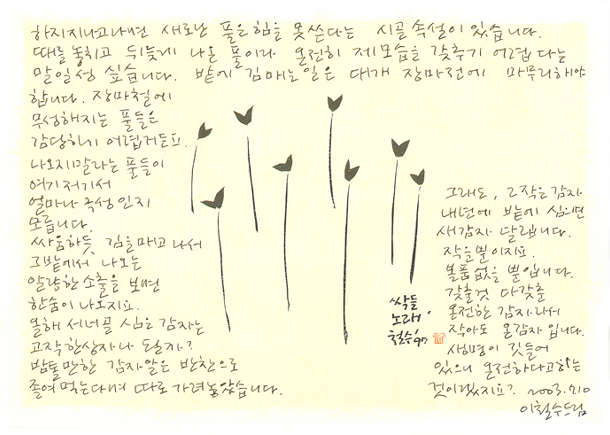 하지지나고나면 새로난 풀은힘을 못쓴다는 시골 속설이 있습니다.
때를 놓치고 뒤늦게 나온 풀이라 온전히 제모습을 갖추기 어렵다는
말일성 싶습니다. 밭에 김매는일은 대개 장마전에 마무리해야
합니다. 장마철에
무성해지는 풀들은
감당하기 어렵거든요.
나오지말라는 풀들이
여기저기서
얼마나 극성인지
모릅니다.
싸움하듯 김을매고 나서
그밭에서 나오는
알량한 소출을 보면
한숨이 나오지요.
올해 서너골 심은 감자는
고작한상자나 될까?
밤톨만한 감자알은 반찬으로
졸여 먹는다며 따로 가려놓았습니다.
그래도, 그작은감자
내년에 밭에 심으면
새감자 달립니다.
작을뿐이지요.
볼품없을 뿐입니다.
갖출것 다갖춘
온전한 감자라서
작아도 온감자 입니다.
생명이 깃들어
있으니 온전하다고하는
것이겠지요? 2003.7.10
이철수드림
싹들
노래'
철수'97